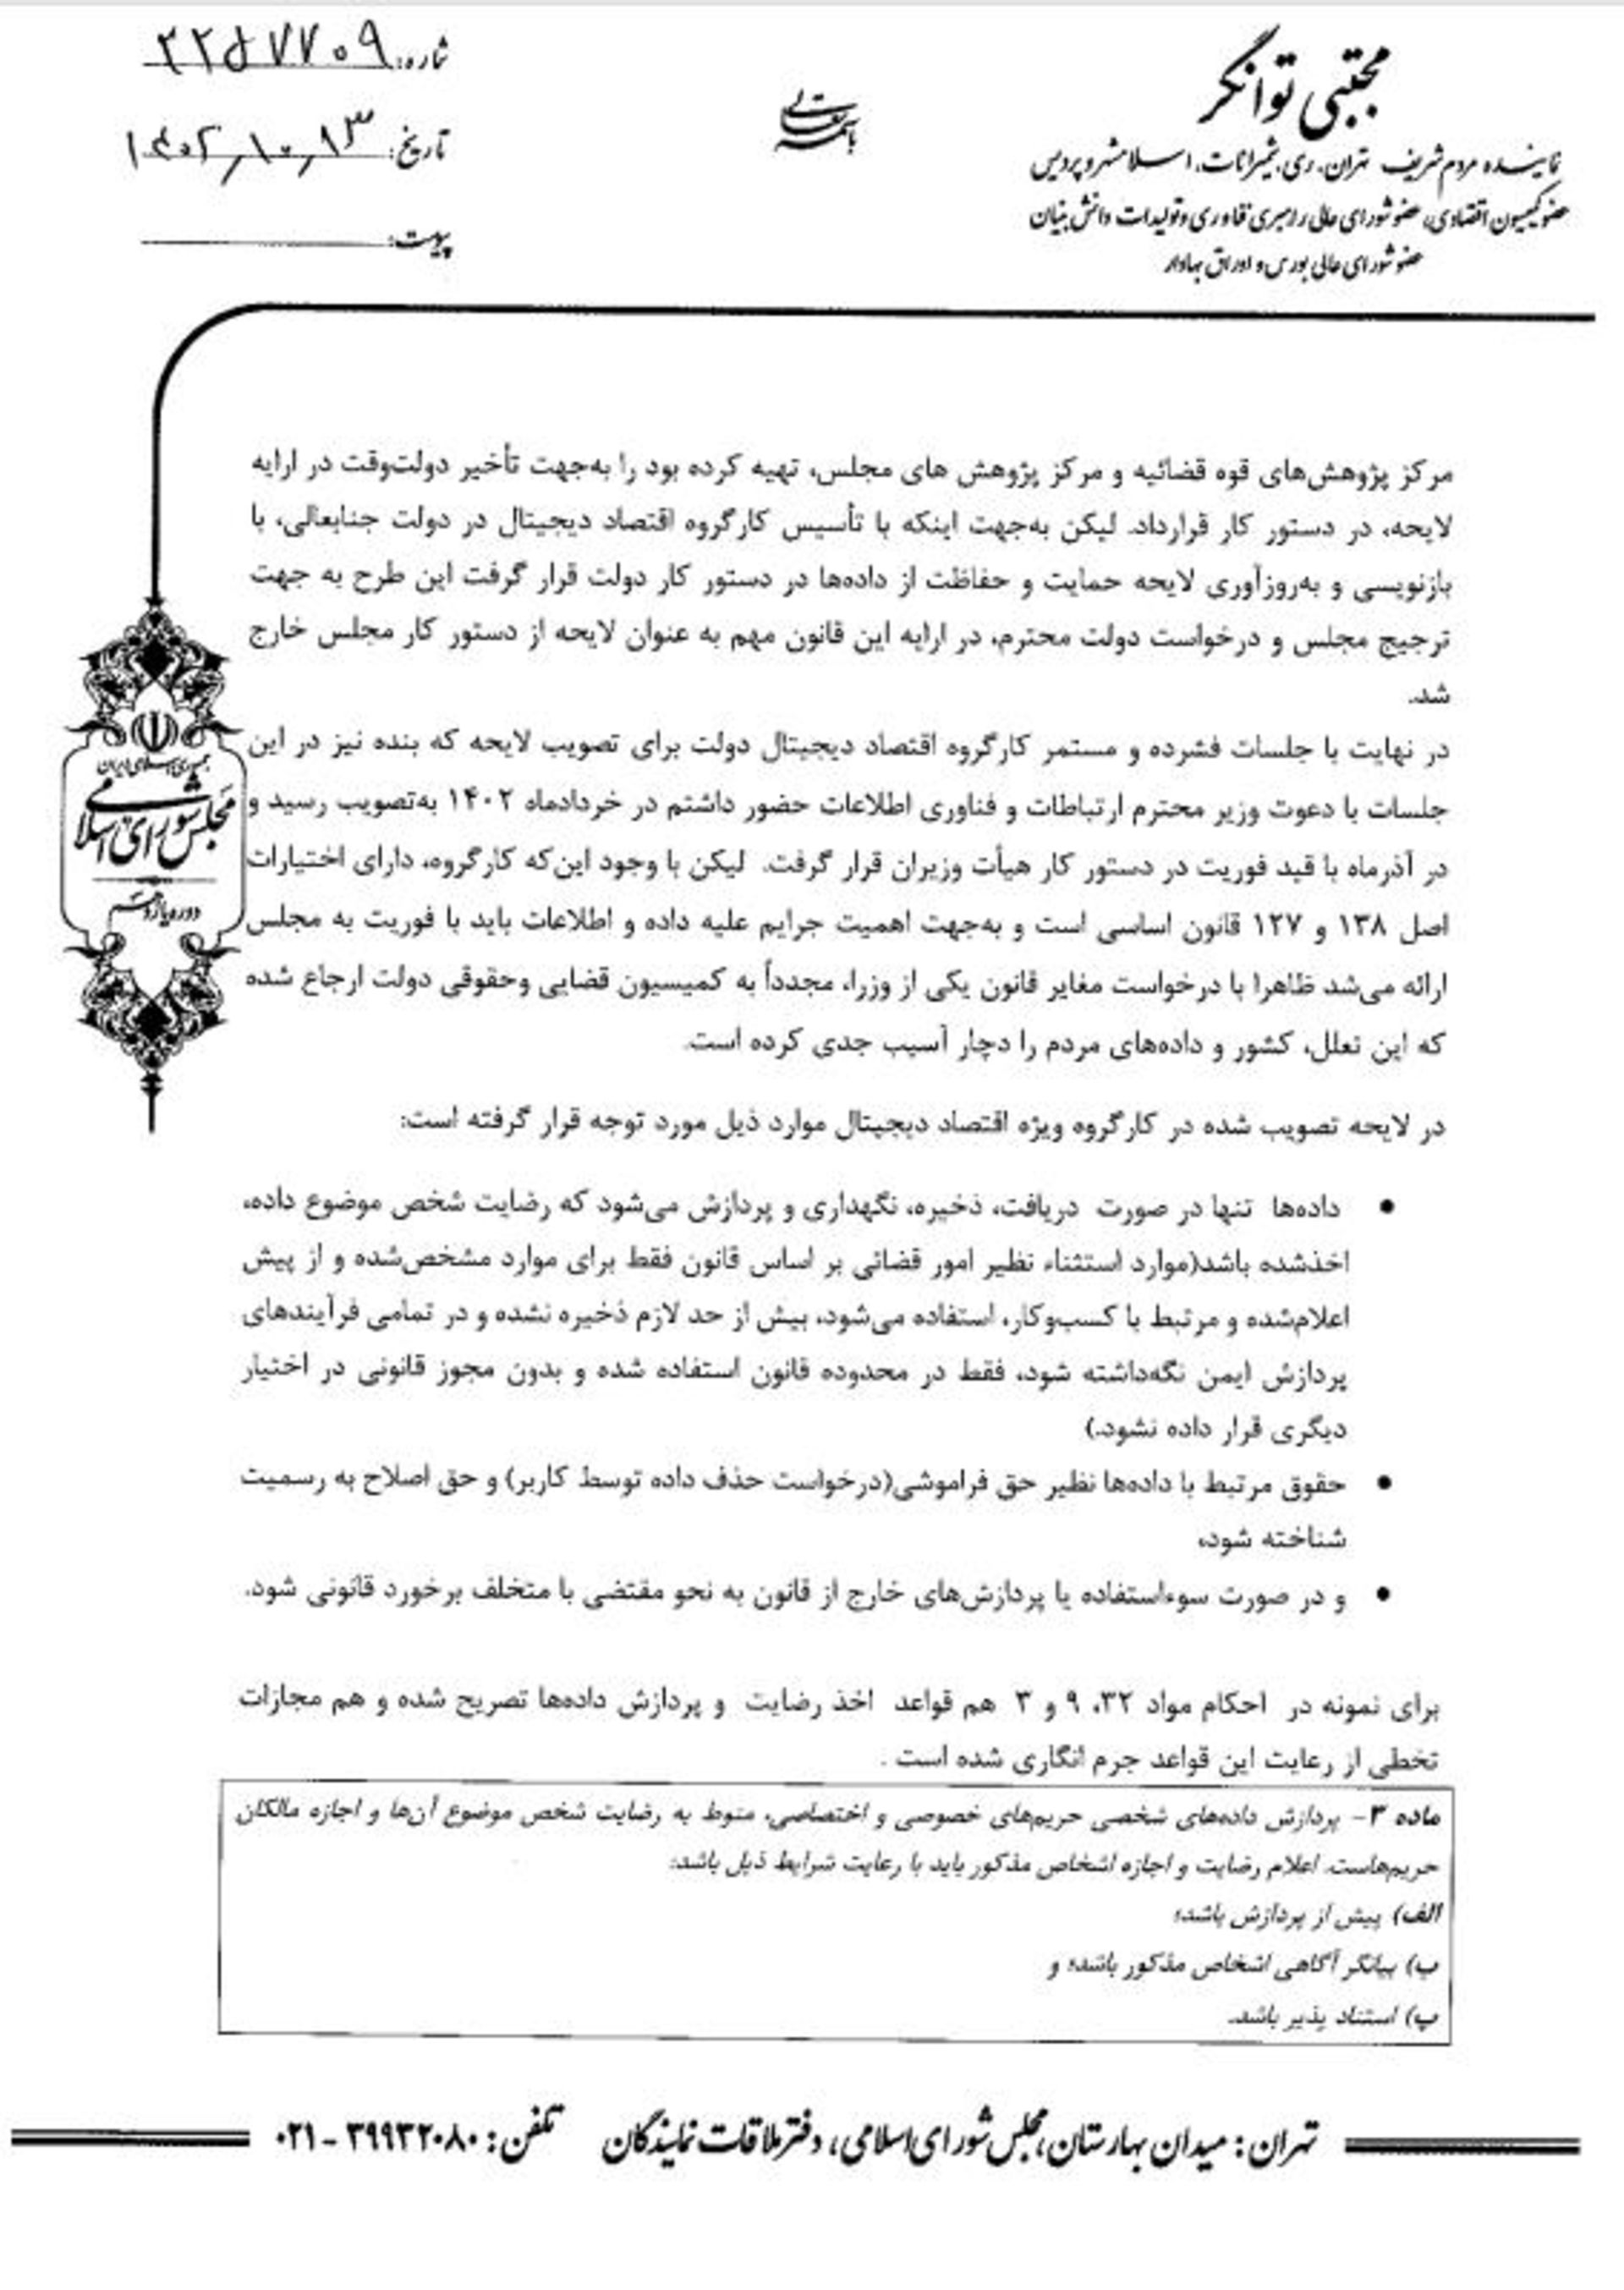 مجتبی توانگر
نماینده مردم شریف تهران، ری، شمیرانات، اسلامشهر و پردیس
عضو کمیسیون اقتصادی، عضو شورای عالی راهبری فناوری و تولیدات دانش بنیان
عضو شورای عالی بورس و اوراق بهادار
باسمه تعالی
شماره: ۲۲۵۷۷۰۹
تاریخ: ۱۴۰۲٫۱۰٫۱۳
پیوست:
مرکز پژوهش‌های قوه قضائیه و مرکز پژوهش های مجلس، تهیه کرده بود را به‌جهت تأخیر دولت‌وقت در ارایه
لایحه، در دستور کار قرارداد. لیکن به‌جهت اینکه با تأسیس کارگروه اقتصاد دیجیتال در دولت جنابعالی، با
بازنویسی و به‌روزآوری لایحه حمایت و حفاظت از داده‌ها در دستور کار دولت قرار گرفت این طرح به جهت
ترجیح مجلس و درخواست دولت محترم، در ارایه این قانون مهم به عنوان لایحه از دستور کار مجلس خارج
شد.
در نهایت با جلسات فشرده و مستمر کارگروه اقتصاد دیجیتال دولت برای تصویب لایحه که بنده نیز در این
جلسات با دعوت وزیر محترم ارتباطات و فناوری اطلاعات حضور داشتم در خردادماه ۱۴۰۲ به‌تصویب رسید و
در آذرماه با قید فوریت در دستور کار هیأت وزیران قرار گرفت. لیکن با وجود این‌که کارگروه، دارای اختیارات
اصل ۱۳۸ و ۱۲۷ قانون اساسی است و به‌جهت اهمیت جرایم علیه داده و اطلاعات باید با فوریت به مجلس
ارائه می‌شد ظاهرا با درخواست مغایر قانون یکی از وزرا، مجدداً به کمیسیون قضایی وحقوقی دولت ارجاع شده
که این تعلل، کشور و داده‌های مردم را دچار آسیب جدی کرده است.
جمهوری اسلامی ایران
مجلس شورای اسلامی
دوره یازدهم
در لایحه تصویب شده در کارگروه ویژه اقتصاد دیجیتال موارد ذیل مورد توجه قرار گرفته است:
• داده‌ها تنها در صورت دریافت، ذخیره، نگهداری و پردازش می‌شود که رضایت شخص موضوع داده،
اخذشده باشد(موارد استثناء نظیر امور قضائی بر اساس قانون فقط برای موارد مشخص‌شده و از پیش
اعلام‌شده و مرتبط با کسب‌وکار، استفاده می‌شود، بیش از حد لازم ذخیره نشده و در تمامی فرآیندهای
پردازش ایمن نگه‌داشته شود، فقط در محدوده قانون استفاده شده و بدون مجوز قانونی در اختیار
دیگری قرار داده نشود.)
• حقوق مرتبط با داده‌ها نظیر حق فراموشی(درخواست حذف داده توسط کاربر) و حق اصلاح به رسمیت
شناخته شود،
• و در صورت سوءاستفاده یا پردازش‌های خارج از قانون به نحو مقتضی با متخلف برخورد قانونی شود.
برای نمونه در احکام مواد ۳۲، ۹ و ۳ هم قواعد اخذ رضایت و پردازش داده‌ها تصریح شده و هم مجازات
تخطی از رعایت این قواعد جرم انگاری شده است .
ماده ۳- پردازش داده‌های شخصی حریم‌های خصوصی و اختصاصی، منوط به رضایت شخص موضوع آن‌ها و اجازه مالکان
حریم‌هاست. اعلام رضایت و اجازه اشخاص مذکور باید با رعایت شرایط ذیل باشد:
الف) پیش از پردازش باشد؛
ب) بیانگر آگاهی اشخاص مذکور باشد؛ و
پ) استناد پذیر باشد.
تهران: میدان بهارستان، مجلس شورای اسلامی، دفتر ملاقات نمایندگان تلفن: ۳۹۹۳۲۰۸۰ - ۰۲۱